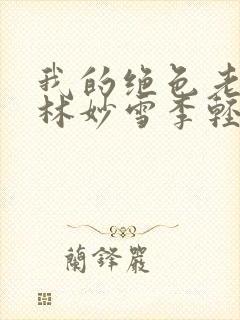 我的绝色老
林妙雪季轻
蘭鋒嚴